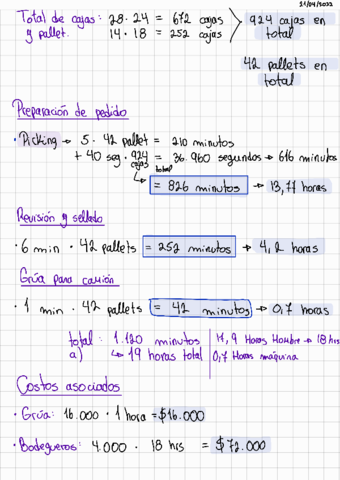 21/04/2022
Total de cajas: 28 · 24 = 672 cajas
y pallet. 14 · 18 = 252 cajas
924 cajas en total
42 pallets en total
Preparación de pedido
• Picking → 5 · 42 pallet = 210 minutos
+ 40 seg · 924 cajas total = 36.960 segundos → 616 minutos
↳ = 826 minutos → 13,77 horas
Revisión y sellado
• 6 min · 42 pallets = 252 minutos → 4,2 horas
Grúa para camión
• 1 min · 42 pallets = 42 minutos → 0,7 horas
total: 1.120 minutos | 17,9 Horas Hombre → 18 hrs
a) ↳ 19 horas total | 0,7 Horas máquina
Costos asociados
• Grúa: 16.000 · 1 hora = $16.000
• Bodegueros: 4.000 · 18 hrs = $72.000